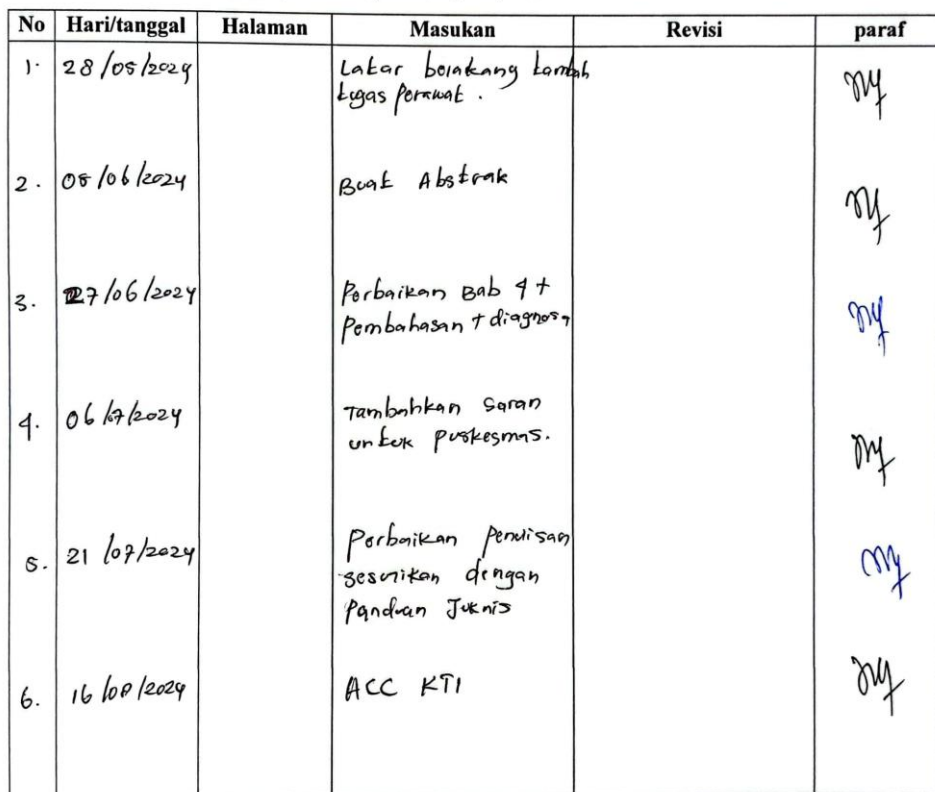 No Hari/tanggal Halaman Masukan Revisi paraf
1. 28/05/2024 Latar belakang tambah
tugas perawat.
2. 05/06/2024 Buat Abstrak
3. 27/06/2024 Perbaikan Bab 4 +
Pembahasan + diagnosa
4. 06/7/2024 Tambahkan Saran
untuk puskesmas.
5. 21/07/2024 Perbaikan Penulisan
sesuaikan dengan
Panduan Juknis
6. 16/08/2024 ACC KTI